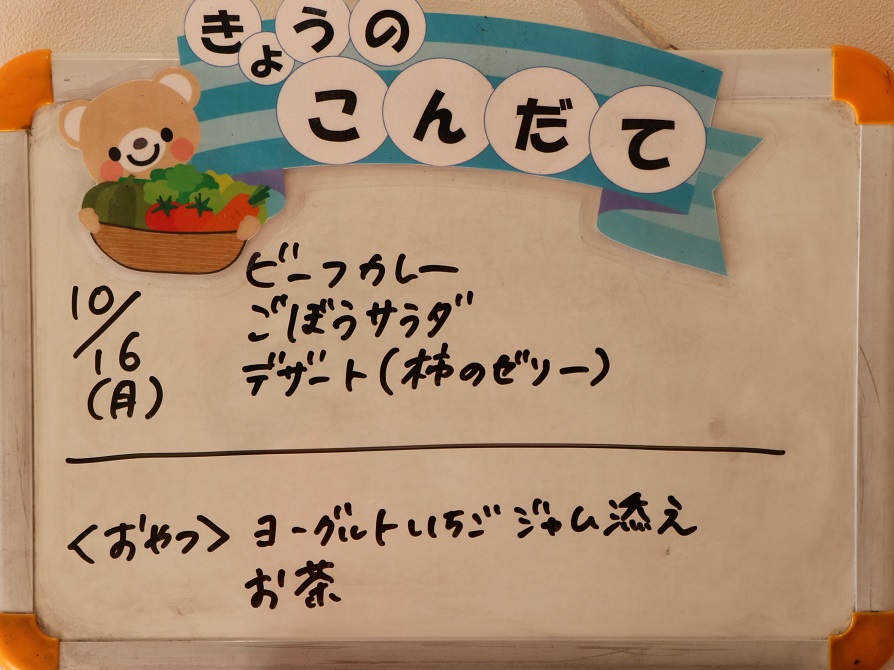 きょうの
こんだて
10/16
(月)
ビーフカレー
ごぼうサラダ
デザート(柿のゼリー)
<おやつ> ヨーグルトいちごジャム添え
お茶